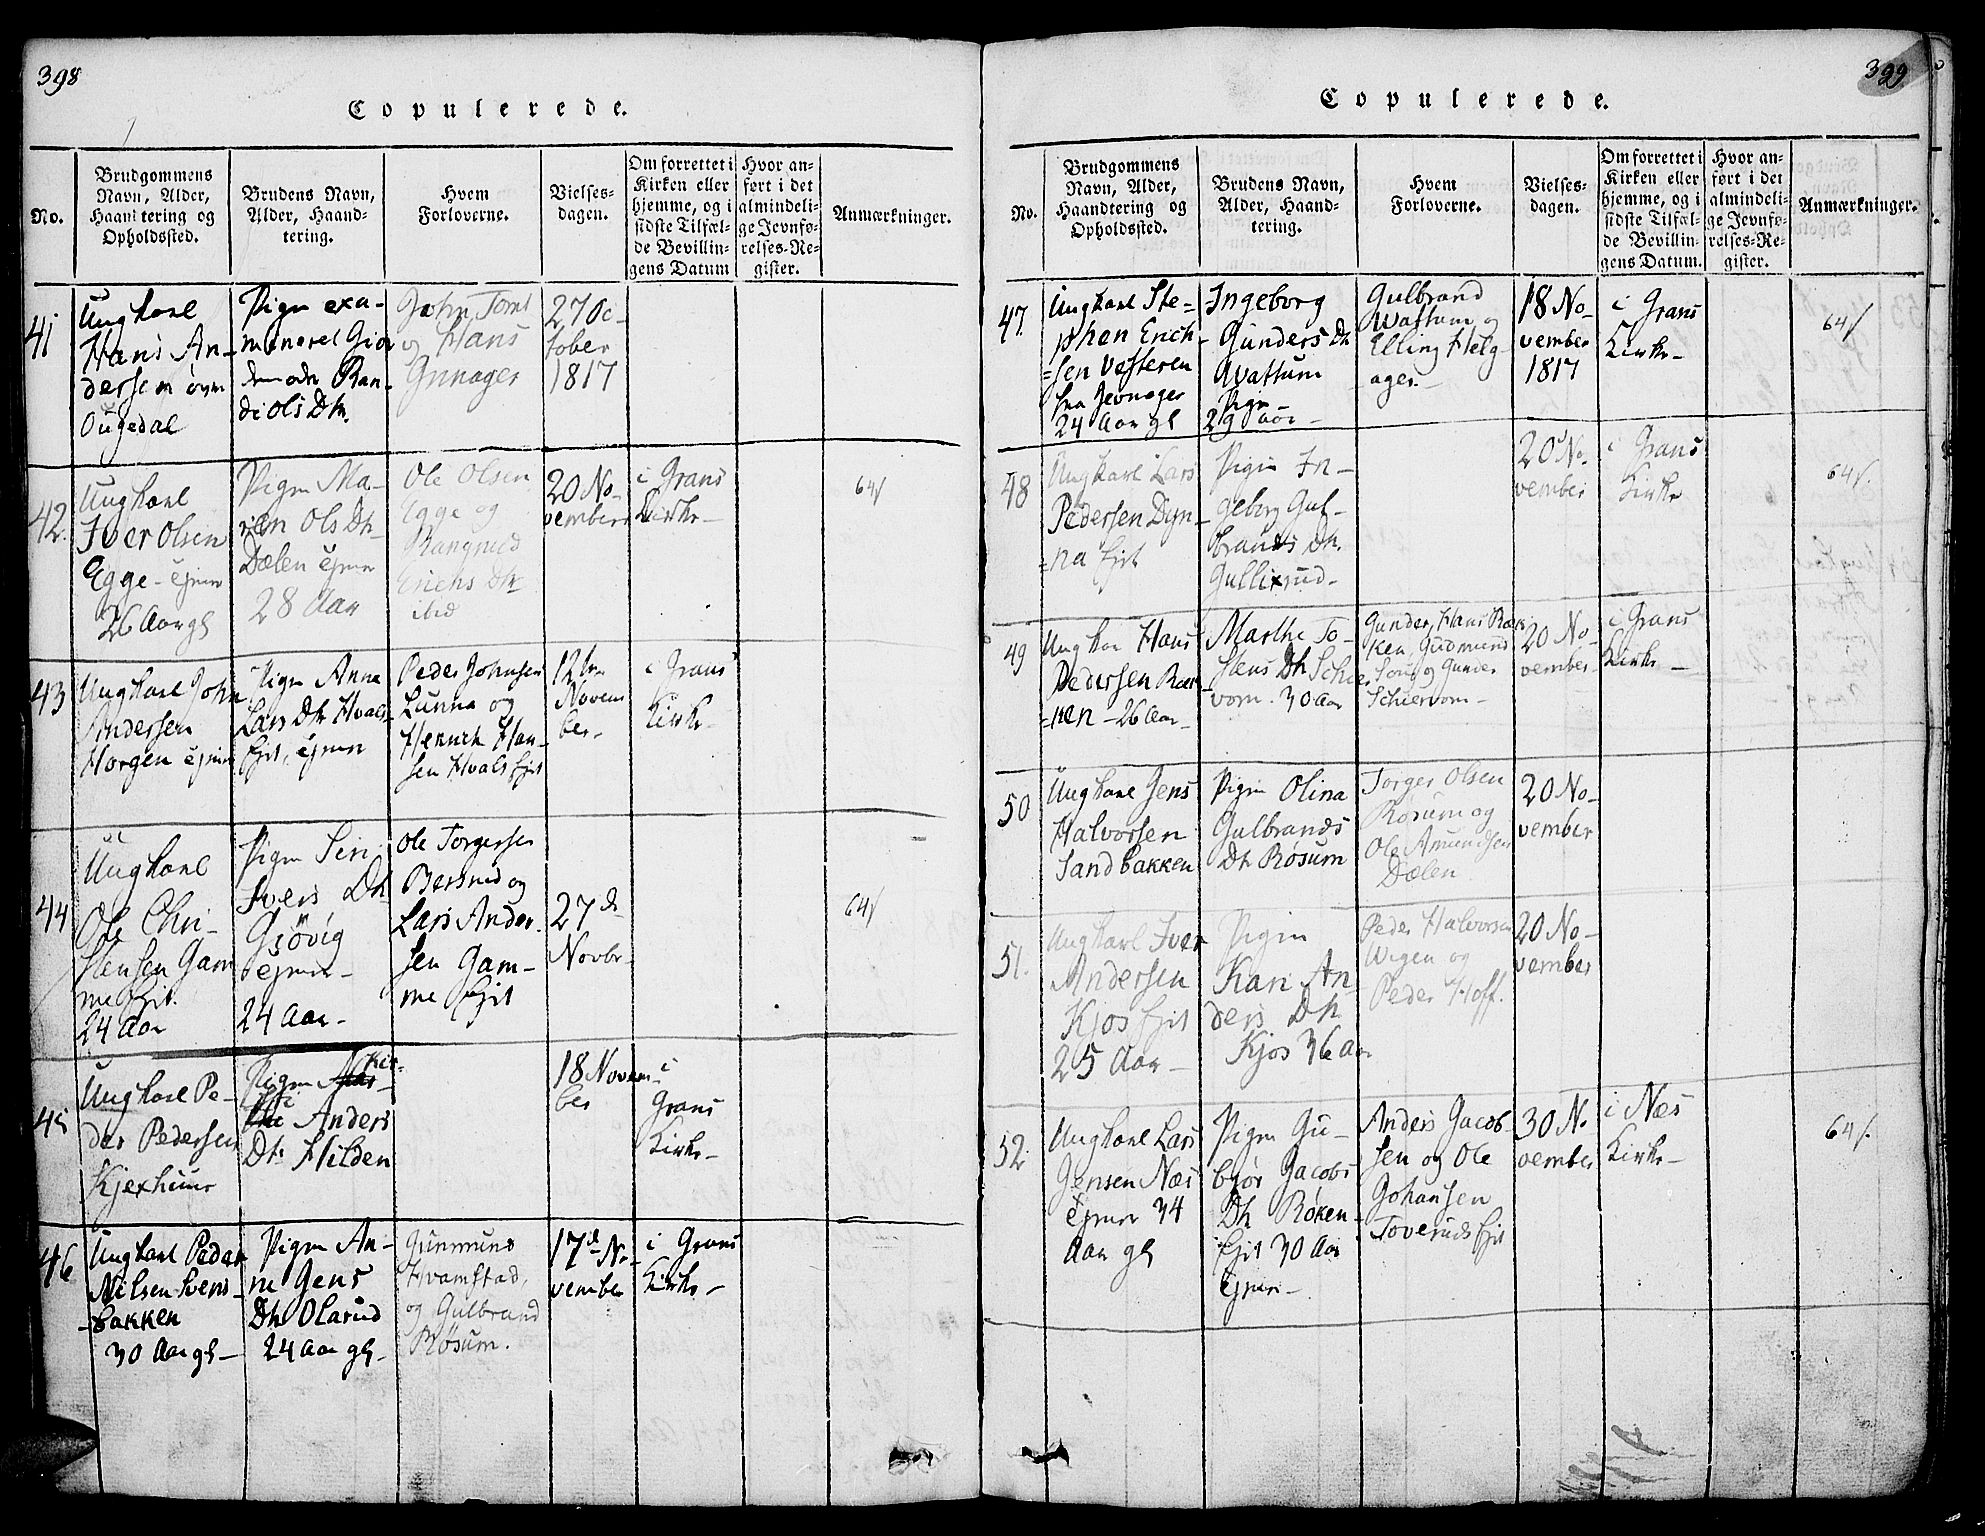 398
Copulerede.
No.
Brudgommens
Navn, Alder,
Haandtering og
Opholdssted.
Brudens Navn,
Alder, Haand-
tering.
Hvem
Forloverne.
Vielses-
dagen.
Om forrettet i
Kirken eller
hjemme, og i
sidste Tilfæl-
de Bevillin-
gens Datum
Hvor an-
ført i det
almindeli-
ge Jevnfø-
relses-Re-
gister.
Anmærkninger.
41
Ungkarl
Hans An-
dersen
Ougedal
Pigen exa-
mineret Gior
demoder Ran-
di Ols Dtr.
John Toms
og Hans
Gunager
27 Oc-
tober
1817
42.
Ungkarl
Iver Olsen
Egge - Ejner
26 Aar gl
Pigen Ma-
ren Ols Dtr
Dælen Ejner
28 Aar
Ole Olsen
Egge og
Rangnild
Erichs Dtr
ibid
20 No-
vember
i Grans
Kirke -
64/
43
Ungkarl John
Andersen
Horgen Ejner
Pigen Anna
Lars Dtr Hvals
Ejet, Ejner
Peder Johnsen
Lunna og
Henrich Han-
sen Hvals Ejet
12te
Novem
ber -
i Grans
Kirke -
44
Ungkarl
Ole Chri-
stensen Gam
me Ejet.
24 Aar
Pigen Siri
Ivers Dtr
Gsövig
Ejner -
24 Aar -
Ole Torgersen
Bersrud og
Lars Ander-
sen Gam-
me Ejet
27de
Novbr
64/
45
Ungkarl Pe-
der Pedersen
Kjexhuus
Pigen Kir-
sti Anders
Dtr Hilden
18 Novem-
ber
i
Grans
Kirke -
46
Ungkarl Peder
Nilsen Svens-
bakken
30 Aar gl -
Pigen An-
ne Jens
Dtr Olarud
24 Aar gl -
Gunmund
Hvamstad,
og Gulbrand
Røsum.
17de No-
vember
i Grans
Kirke -
399
Copulerede.
No.
Brudgommens
Navn, Alder,
Haandtering og
Opholdssted.
Brudens Navn,
Alder, Haand-
tering.
Hvem
Forloverne.
Vielses-
dagen.
Om forrettet i
Kirken eller
hjemme, og i
sidste Tilfæl-
de Bevillin-
gens Datum.
Hvor an-
ført i det
almindeli-
ge Jevnfø-
relses-Re-
gister.
Anmærkninger.
47.
Ungkarl Ste-
phen Erich-
=sen Vesteren
fra Jevnager
24 Aar gl
Ingeborg
Gunders Dtr
Qvattum
Pigen
29 Aar -
Gulbrand
Wattum og
Elling Helg-
ager -
18 No-
vember
1817
i Grans
Kirke -
64/
48
Ungkarl Lars
Pedersen Dyn-
=na Ejet
Pigen In-
geborg Gul-
brands Dtr.
Gullixrud -
20 No-
vember
i Grans
Kirke
64/.
49
Ungkar Hans
Pedersen Ræk-
=ken - 26 Aar -
Marthe To-
stens Dtr Schier
vom - 30 Aar
Gunder, Hans Ræk
ken, Gudmund
og Gunder
Schiervom -
20 No-
vember
i Grans
Kirke -
50
Ungkarl Jens
Halvorsen
Sandbakken
Pigen Olina
Gulbrands
Dtr Røsum
Torger Olsen
Røsum og
Ole Amundsen
Dælen
20 No-
vember
51.
Ungkarl Iver
Andersen
Kjos Ejet
25 Aar -
Pigen
Kari An-
ders Dtr
Kjos 36 Aar
Peder Halvorsen
Wigen og
Peder Hoff.
20 No-
vember
52
Ungkarl Lars
Jensen Næs
Ejner 34
Aar gl
Pigen Gu-
bjør Jacobs
Dtr Røken-
Ejet 30 Aar
Ejner -
Anders Jacob-
sen og Ole
Johansen
Toveruds Ejet
30 No-
vember
i Næs
Kirke -
64/.